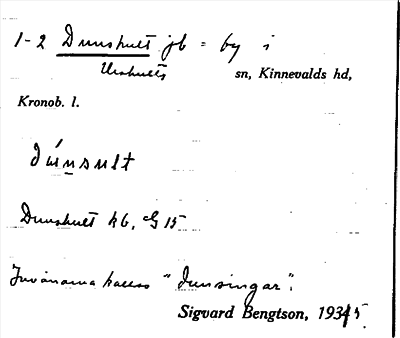 1-2 Dunshult jb = by i
Urshults sn, Kinnevalds hd,
Kronob. l.
dúnsult
Dunshult kb, G 15
Invånarna kallas "dunsingar".
Sigvard Bengtson, 1935